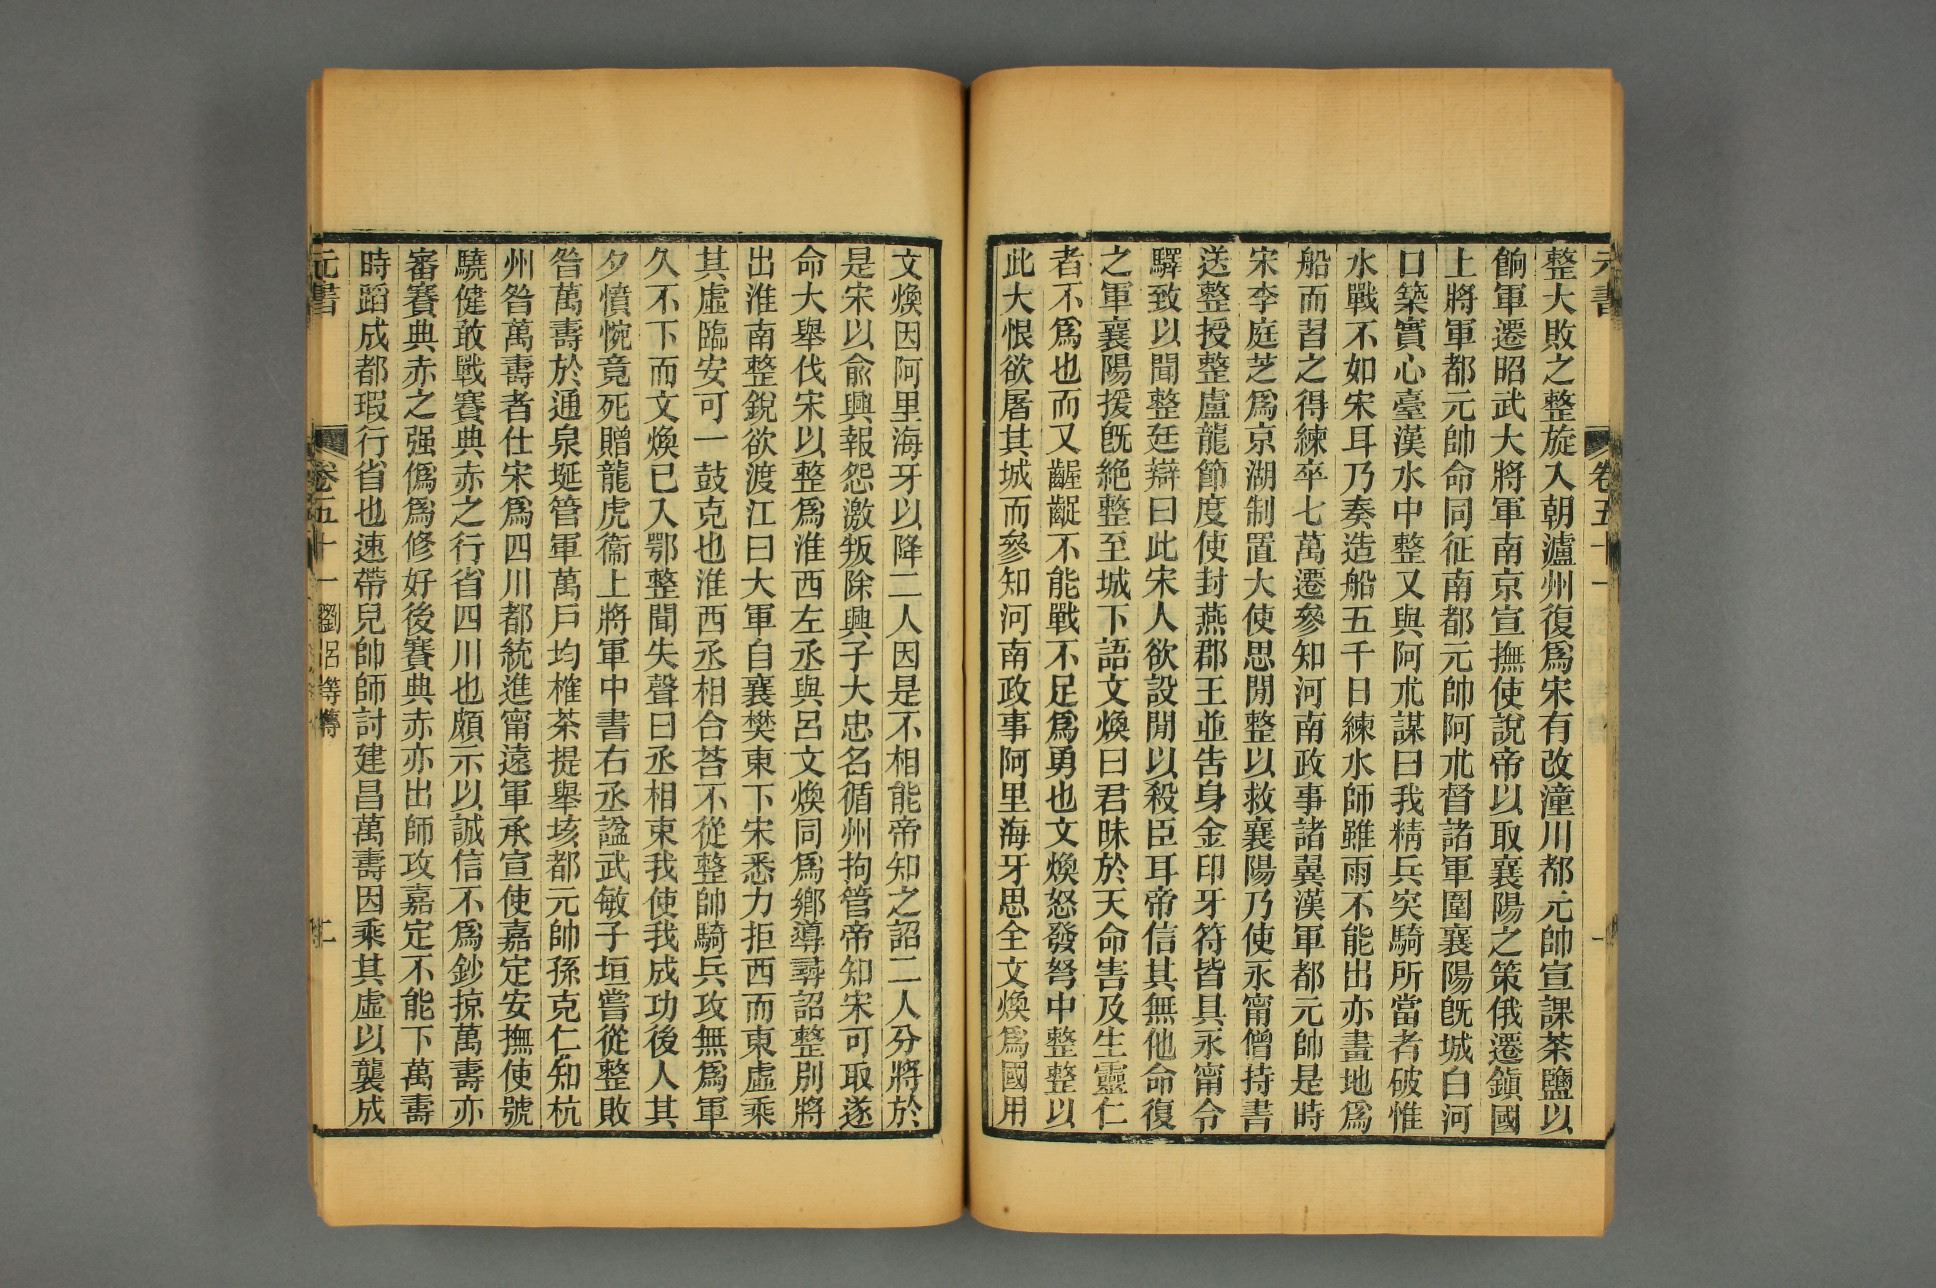 元書
卷五十一
一
整大敗之整旋入朝瀘州復爲宋有改潼川都元帥宣課茶鹽以
餉軍遷昭武大將軍南京宣撫使說帝以取襄陽之策俄遷鎭國
上將軍都元帥命同征南都元帥阿朮督諸軍圍襄陽旣城白河
口築實心臺漢水中整又與阿朮謀曰我精兵突騎所當者破惟
水戰不如宋耳乃奏造船五千日練水師雖雨不能出亦畫地爲
船而習之得練卒七萬遷參知河南政事諸翼漢軍都元帥是時
宋李庭芝爲京湖制置大使思閒整以救襄陽乃使永甯僧持書
送整授整盧龍節度使封燕郡王並告身金印牙符皆具永甯令
驛致以聞整廷辯曰此宋人欲設閒以殺臣耳帝信其無他命復
之軍襄陽援旣絶整至城下語文煥曰君昧於天命害及生靈仁
者不爲也而又齷齪不能戰不足爲勇也文煥怒發弩中整整以
此大恨欲屠其城而參知河南政事阿里海牙思全文煥爲國用
文煥因阿里海牙以降二人因是不相能帝知之詔二人分將於
是宋以俞興報怨激叛除興子大忠名循州拘管帝知宋可取遂
命大舉伐宋以整爲淮西左丞與呂文煥同爲鄕導尋詔整別將
出淮南整銳欲渡江曰大軍自襄樊東下宋悉力拒西而東虛乘
其虛臨安可一鼓克也淮西丞相合荅不從整帥騎兵攻無爲軍
久不下而文煥已入鄂整聞失聲曰丞相束我使我成功後人其
夕憤惋竟死贈龍虎衞上將軍中書右丞諡武敏子垣嘗從整敗
昝萬壽於通泉埏管軍萬戶均榷茶提舉垓都元帥孫克仁知杭
州昝萬壽者仕宋爲四川都統進甯遠軍承宣使嘉定安撫使號
驍健敢戰賽典赤之行省四川也頗示以誠信不爲鈔掠萬壽亦
審賽典赤之强僞爲修好後賽典赤亦出師攻嘉定不能下萬壽
時蹈成都瑕行省也速帶兒帥師討建昌萬壽因乘其虛以襲成
元書
卷五十一 劉呂等傳
二